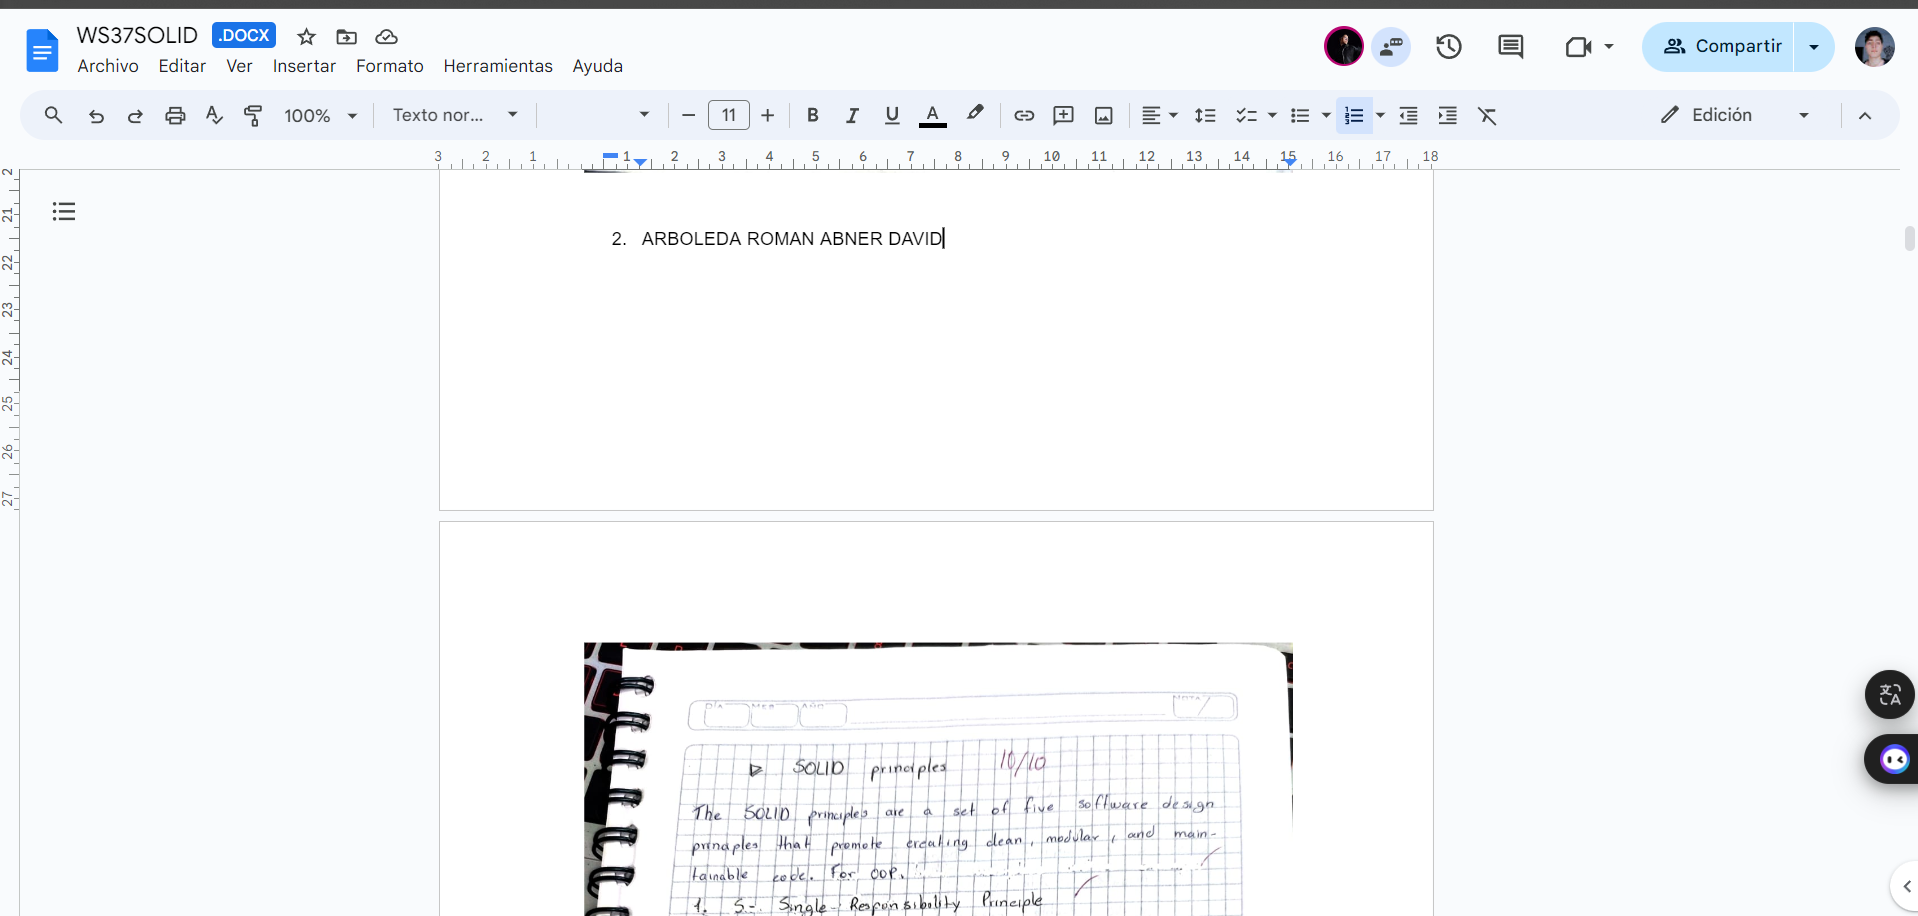 WS37SOLID .DOCX
Archivo Editar Ver Insertar Formato Herramientas Ayuda
Compartir
100% Texto nor... 11 B I U A Edición
3 2 1 1 2 3 4 5 6 7 8 9 10 11 12 13 14 15 16 17 18
2
21
22
23
24
25
26
27
2. ARBOLEDA ROMAN ABNER DAVID
DÍA MES AÑO NOTA
SOLID principles 10/10
The SOLID principles are a set of five software design
principles that promote creating clean, modular, and main-
tainable code. For OOP.
1. S-. Single-Responsibility Principle